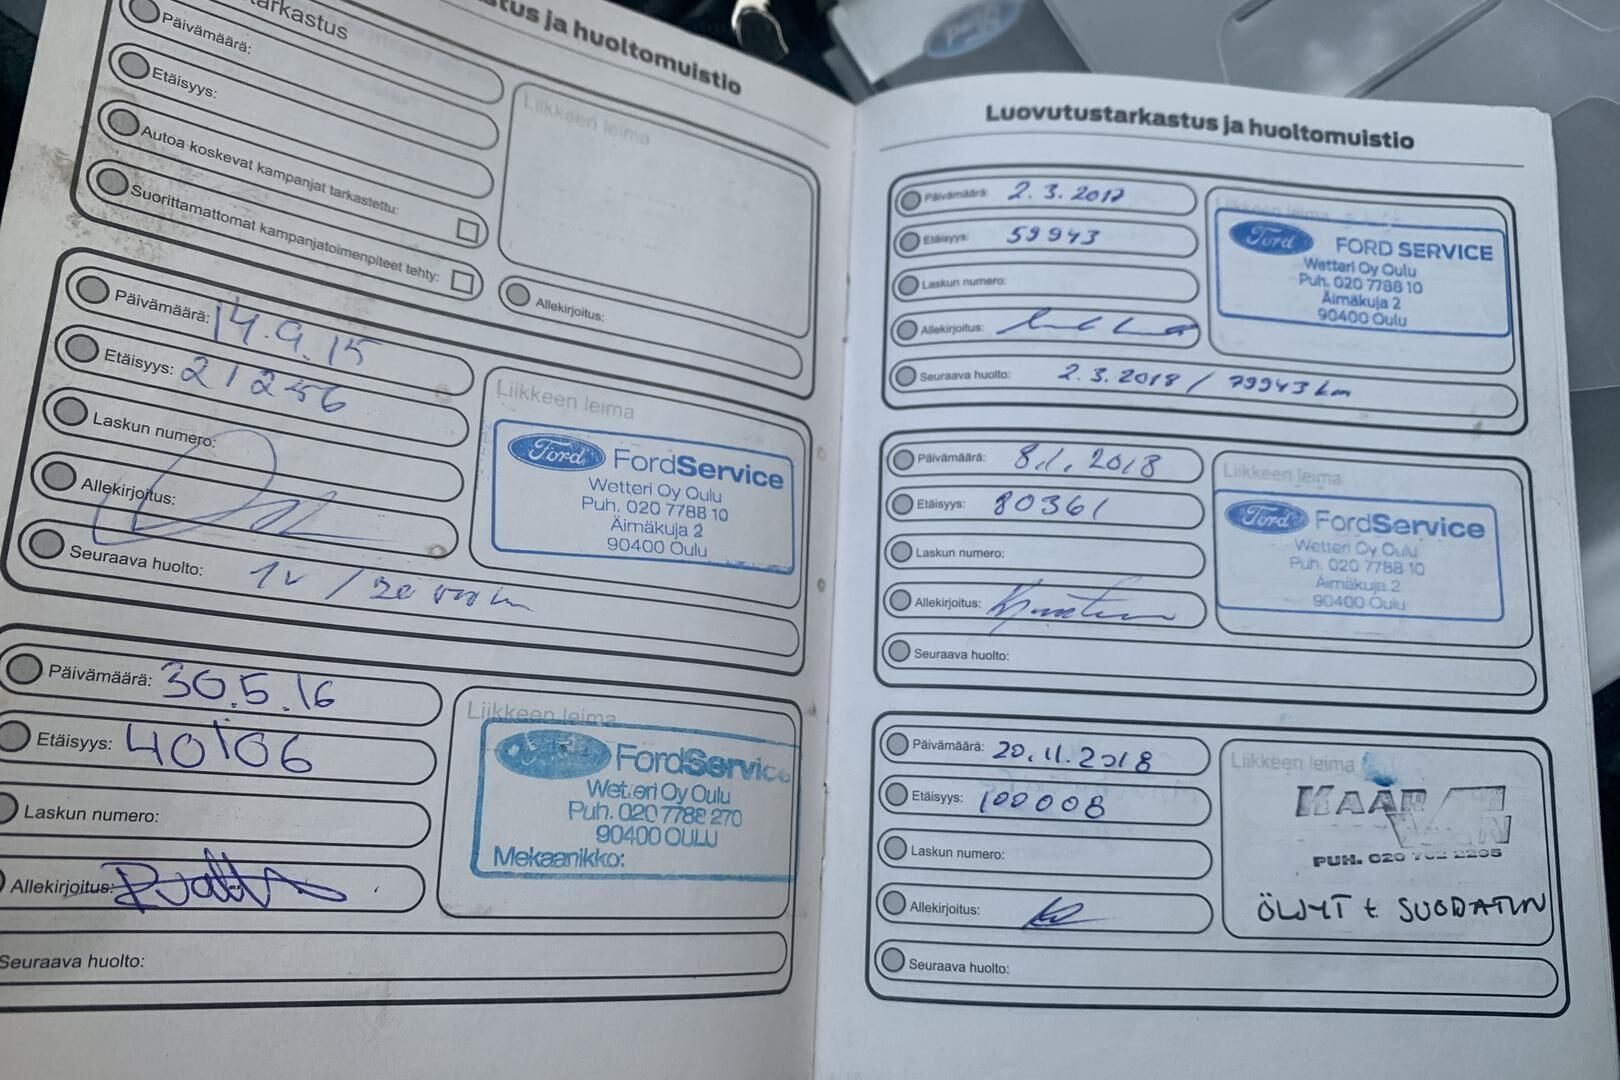 tus ja huoltomuistio
tarkastus
Päivämäärä:
Etäisyys:
Autoa koskevat kampanjat tarkastettu:
Suorittamattomat kampanjatoimenpiteet tehty:
Liikkeen leima
Allekirjoitus:
Päivämäärä: 14.9.15
Etäisyys: 21256
Laskun numero:
Allekirjoitus:
Seuraava huolto: 1v / 20 000 km
Liikkeen leima
Ford FordService
Wetteri Oy Oulu
Puh. 020 7788 10
Äimäkuja 2
90400 Oulu
Päivämäärä: 30.5.16
Etäisyys: 40106
Laskun numero:
Allekirjoitus:
Seuraava huolto:
Liikkeen leima
FordService
Wetteri Oy Oulu
Puh. 020 7788 270
90400 OULU
Mekaanikko:
Luovutustarkastus ja huoltomuistio
Päivämäärä: 2.3.2017
Etäisyys: 59943
Laskun numero:
Allekirjoitus:
Seuraava huolto: 2.3.2018 / 79943 km
Liikkeen leima
Ford FORD SERVICE
Wetteri Oy Oulu
Puh. 020 7788 10
Äimäkuja 2
90400 Oulu
Päivämäärä: 8.1.2018
Etäisyys: 80361
Laskun numero:
Allekirjoitus:
Seuraava huolto:
Liikkeen leima
Ford FordService
Wetteri Oy Oulu
Puh. 020 7788 10
Äimäkuja 2
90400 Oulu
Päivämäärä: 20.11.2018
Etäisyys: 100008
Laskun numero:
Allekirjoitus:
Seuraava huolto:
Liikkeen leima
PUH. 020 702 2205
ÖLJYT + SUODATIN